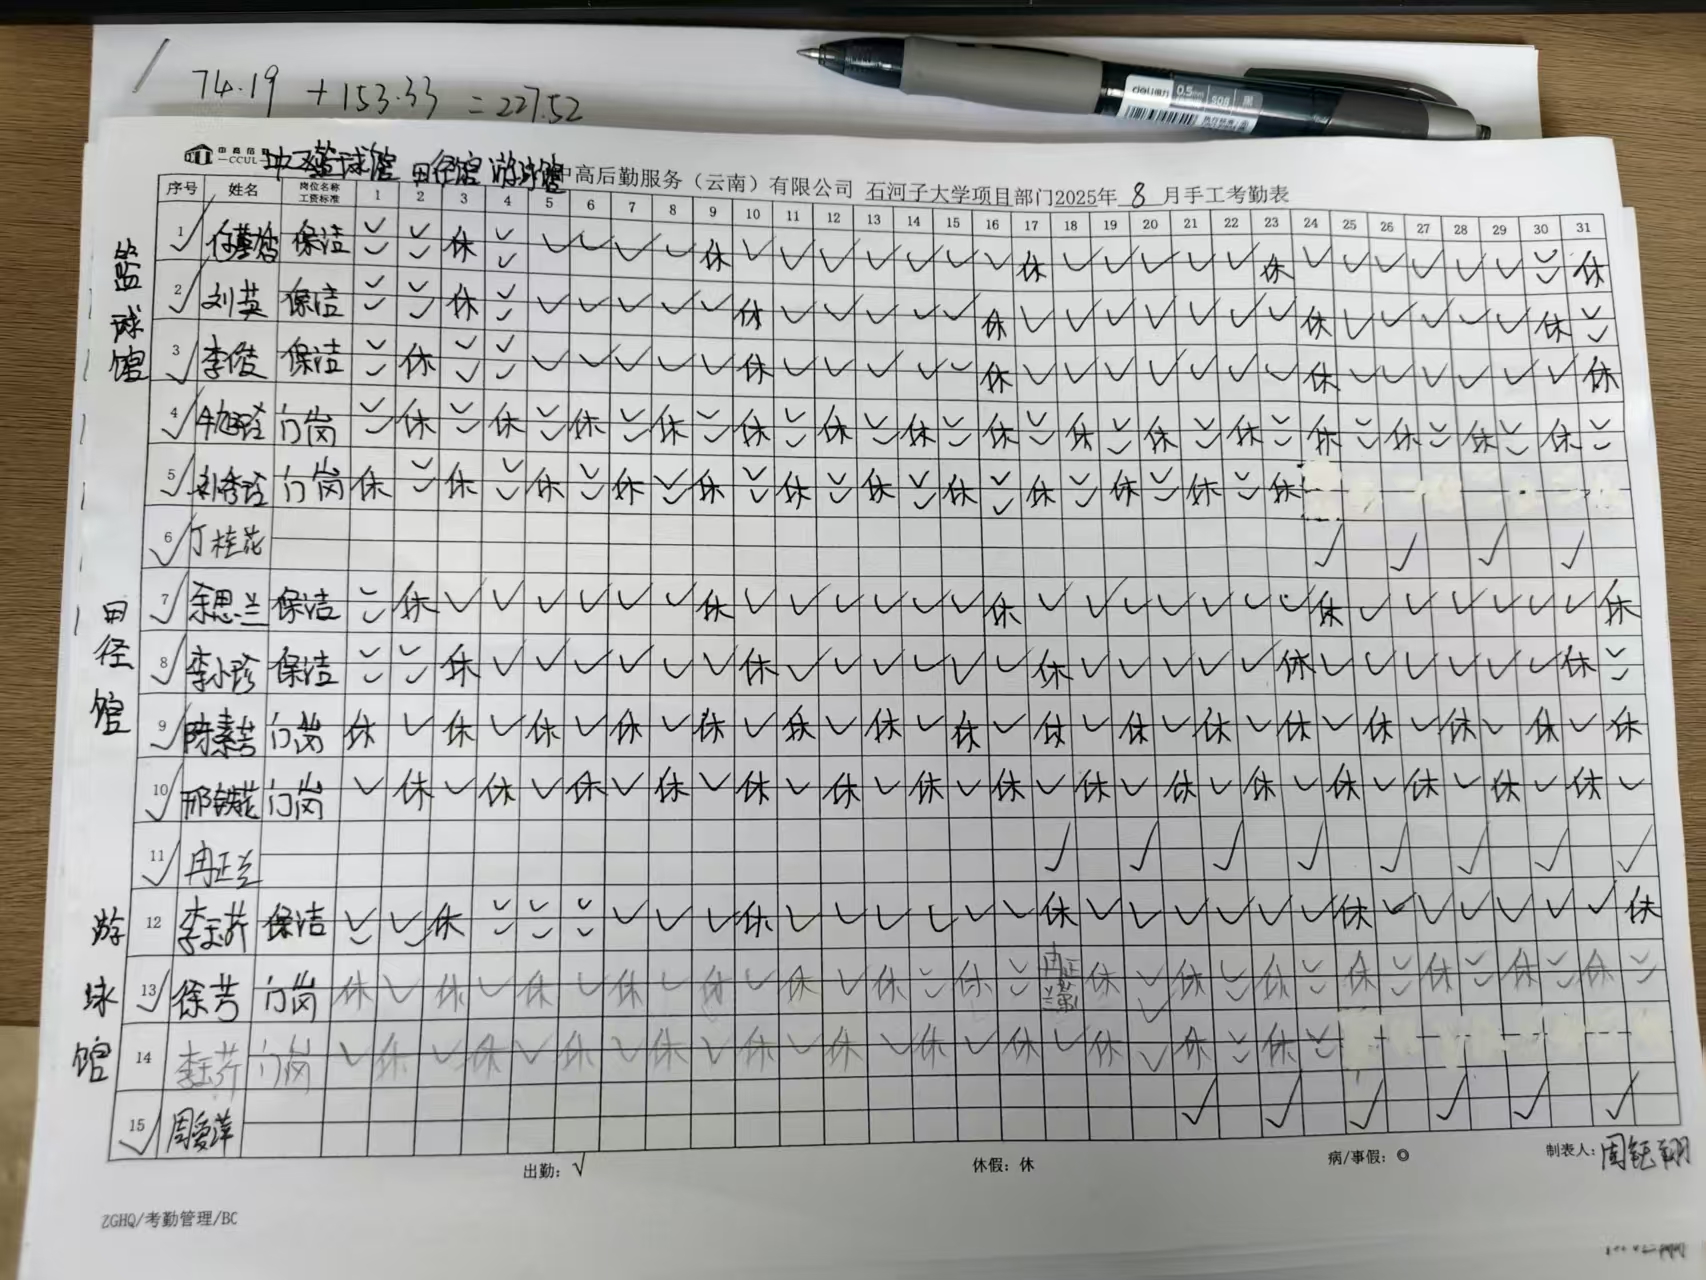 74.19 + 153.33 = 227.52
CCUL
篮球馆 田径馆 游泳馆 中高后勤服务（云南）有限公司 石河子大学项目部门2025年 8 月手工考勤表
序号 姓名 岗位名称 工资标准 1 2 3 4 5 6 7 8 9 10 11 12 13 14 15 16 17 18 19 20 21 22 23 24 25 26 27 28 29 30 31
篮球馆
1 保洁 ✓✓ ✓✓ 休 ✓✓ ✓ ✓ ✓ ✓ 休 ✓ ✓ ✓ ✓ ✓ ✓ ✓ 休 ✓ ✓ ✓ ✓ ✓ 休 ✓ ✓ ✓ ✓ ✓ ✓ ✓✓ 休
2 刘英 保洁 ✓✓ ✓✓ 休 ✓✓ ✓ ✓ ✓ ✓ ✓ 休 ✓ ✓ ✓ ✓ ✓ 休 ✓ ✓ ✓ ✓ ✓ ✓ ✓ 休 ✓ ✓ ✓ ✓ ✓ 休 ✓✓
3 李俊 保洁 ✓✓ 休 ✓✓ ✓✓ ✓ ✓ ✓ ✓ ✓ 休 ✓ ✓ ✓ ✓ ✓ 休 ✓ ✓ ✓ ✓ ✓ ✓ ✓ 休 ✓ ✓ ✓ ✓ ✓ ✓ 休
4 门岗 ✓✓ 休 ✓✓ 休 ✓✓ 休 ✓✓ 休 ✓✓ 休 ✓✓ 休 ✓✓ 休 ✓✓ 休 ✓✓ 休 ✓✓ 休 ✓✓ 休 ✓✓ 休 ✓✓ 休 ✓✓ 休 ✓✓ 休 ✓✓
5 刘秀玲 门岗 休 ✓✓ 休 ✓✓ 休 ✓✓ 休 ✓✓ 休 ✓✓ 休 ✓✓ 休 ✓✓ 休 ✓✓ 休 ✓✓ 休 ✓✓ 休 ✓✓ 休
6 丁桂花 ✓ ✓ ✓ ✓
田径馆
7 余思兰 保洁 ✓✓ 休 ✓ ✓ ✓ ✓ ✓ ✓ 休 ✓ ✓ ✓ ✓ ✓ ✓ 休 ✓ ✓ ✓ ✓ ✓ ✓ ✓ 休 ✓ ✓ ✓ ✓ ✓ ✓ 休
8 李小珍 保洁 ✓✓ ✓✓ 休 ✓ ✓ ✓ ✓ ✓ ✓ 休 ✓ ✓ ✓ ✓ ✓ ✓ 休 ✓ ✓ ✓ ✓ ✓ 休 ✓ ✓ ✓ ✓ ✓ ✓ 休 ✓✓
9 陈素芳 门岗 休 ✓ 休 ✓ 休 ✓ 休 ✓ 休 ✓ 休 ✓ 休 ✓ 休 ✓ 休 ✓ 休 ✓ 休 ✓ 休 ✓ 休 ✓ 休 ✓ 休 ✓ 休
10 邢铁花 门岗 ✓ 休 ✓ 休 ✓ 休 ✓ 休 ✓ 休 ✓ 休 ✓ 休 ✓ 休 ✓ 休 ✓ 休 ✓ 休 ✓ 休 ✓ 休 ✓ 休 ✓ 休 ✓
11 冉正兰 ✓ ✓ ✓ ✓ ✓ ✓ ✓ ✓
游泳馆
12 李玉芹 保洁 ✓✓ ✓✓ 休 ✓✓ ✓✓ ✓✓ ✓ ✓ ✓ 休 ✓ ✓ ✓ ✓ ✓ ✓ 休 ✓ ✓ ✓ ✓ ✓ ✓ 休 ✓ ✓ ✓ ✓ ✓ ✓ 休
13 徐芳 门岗 休 ✓ 休 ✓ 休 ✓ 休 ✓ 休 ✓ 休 ✓ 休 ✓✓ 休 ✓✓ 休 ✓✓ 休 ✓✓ 休 ✓✓ 休 ✓✓ 休 ✓✓ 休 ✓✓ 休 ✓✓
14 李玉芹 门岗 ✓ 休 ✓ 休 ✓ 休 ✓ 休 ✓ 休 ✓ 休 ✓ 休 ✓ 休 ✓ 休 ✓✓ 休 ✓✓ 休 ✓✓
15 周爱萍 ✓ ✓ ✓ ✓ ✓ ✓
出勤：√ 休假：休 病/事假：◎ 制表人：周钰翔
ZGHQ/考勤管理/BC